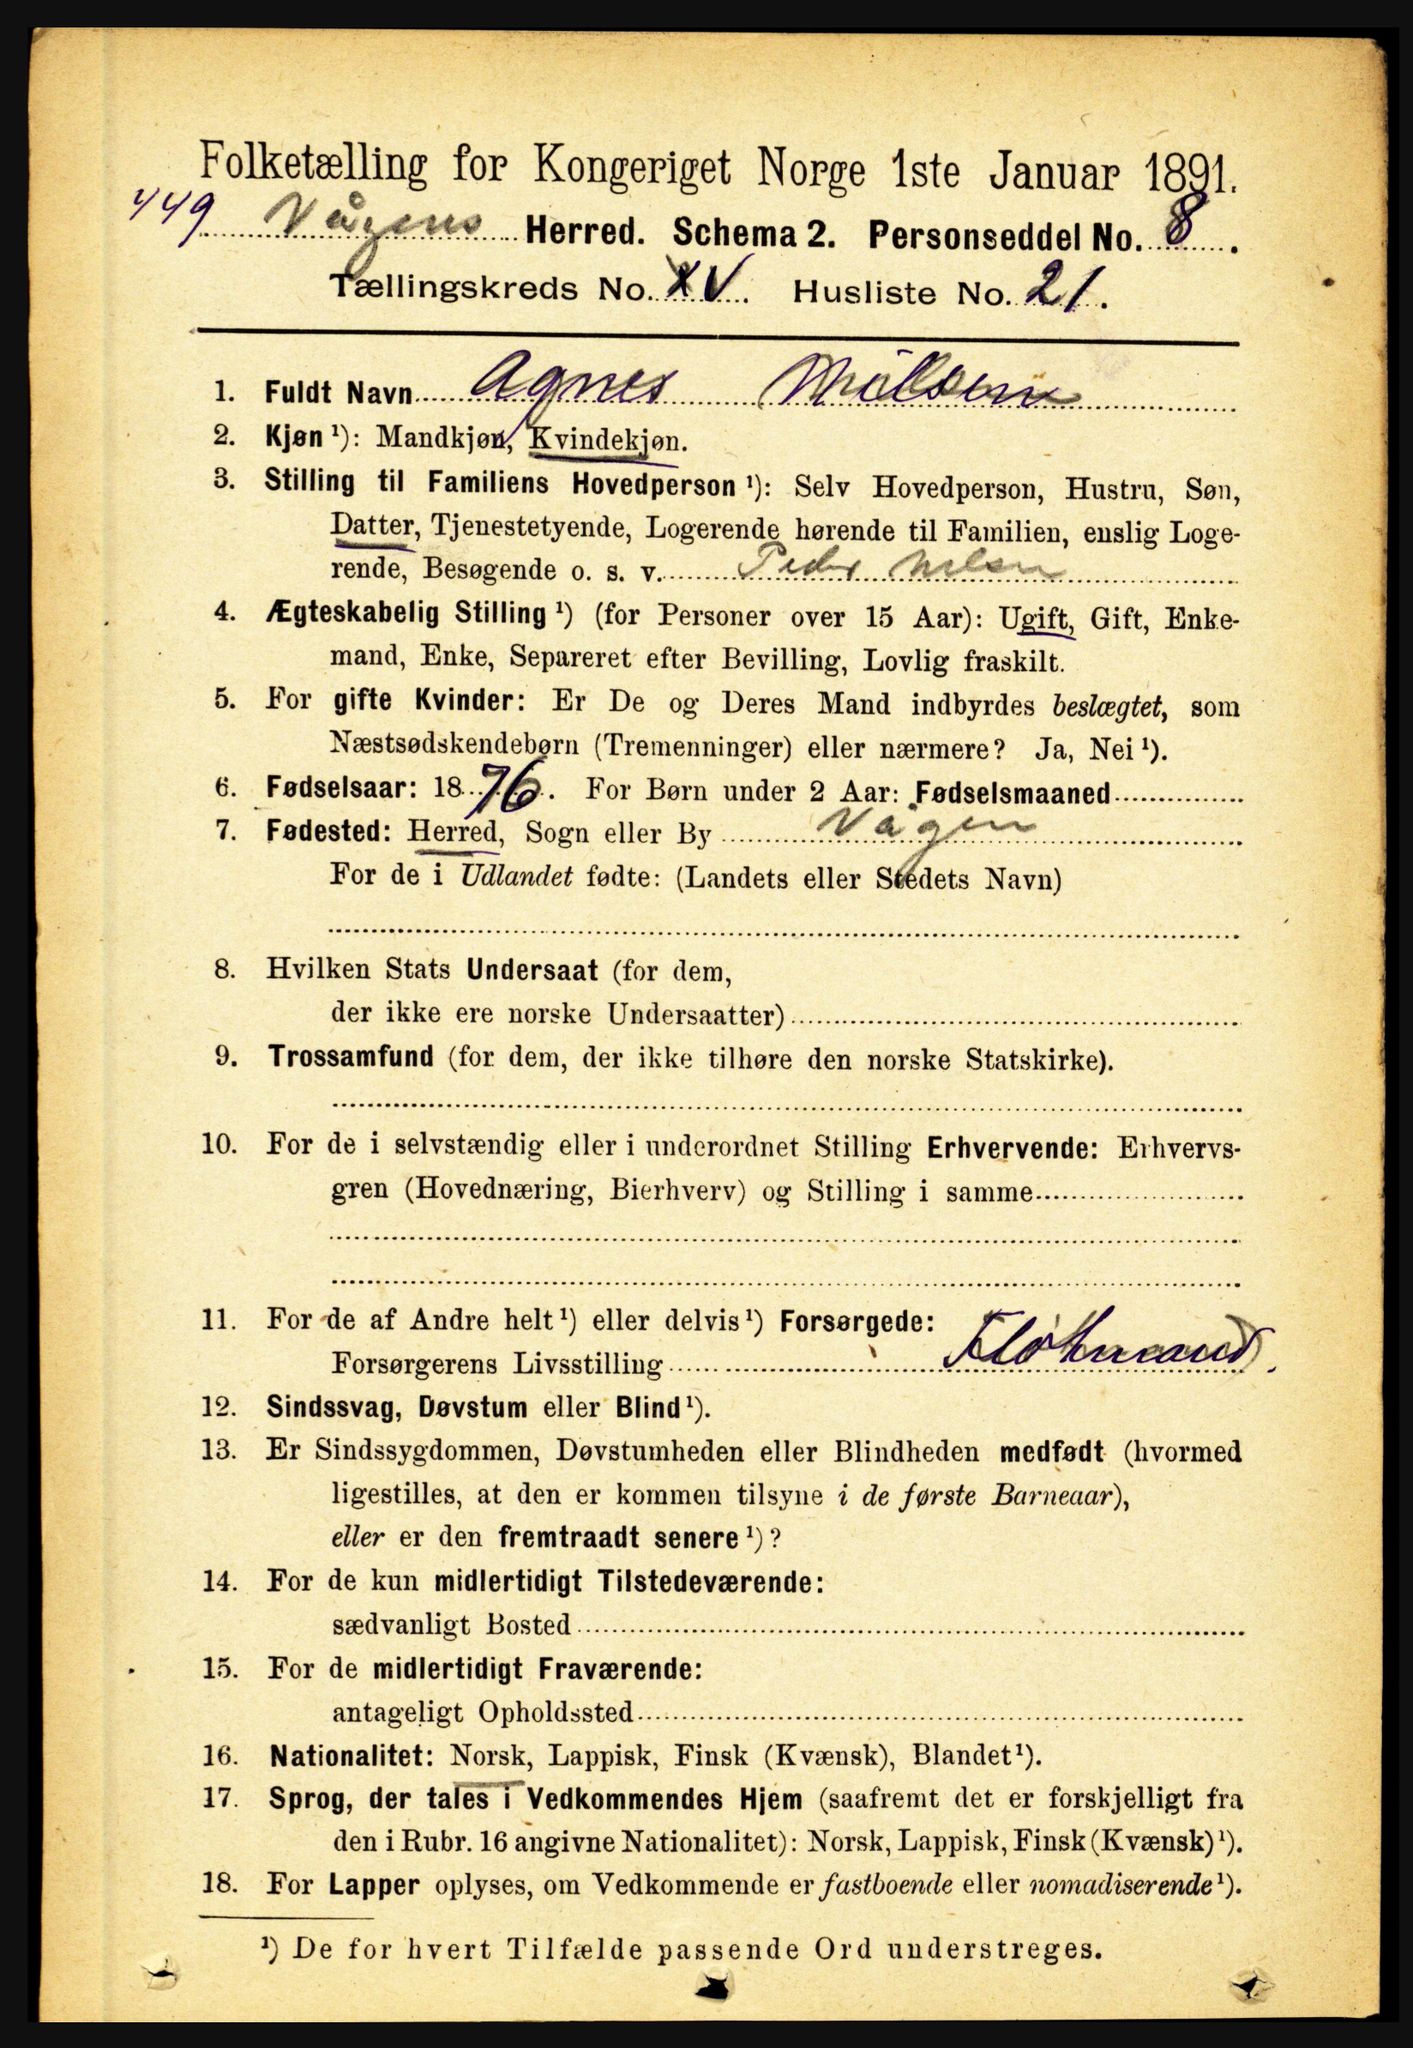 Folketælling for Kongeriget Norge 1ste Januar 1891.
449 Vågens Herred. Schema 2. Personseddel No. 8.
Tællingskreds No. XV. Husliste No. 21.
1. Fuldt Navn Agnes Nilsen
2. Kjøn ¹): Mandkjøn, Kvindekjøn.
3. Stilling til Familiens Hovedperson ¹): Selv Hovedperson, Hustru, Søn,
Datter, Tjenestetyende, Logerende hørende til Familien, enslig Loge-
rende, Besøgende o. s. v. Peder Nilsen
4. Ægteskabelig Stilling ¹) (for Personer over 15 Aar): Ugift, Gift, Enke-
mand, Enke, Separeret efter Bevilling, Lovlig fraskilt.
5. For gifte Kvinder: Er De og Deres Mand indbyrdes beslægtet, som
Næstsødskendebørn (Tremenninger) eller nærmere? Ja, Nei ¹).
6. Fødselsaar: 1876. For Børn under 2 Aar: Fødselsmaaned
7. Fødested: Herred, Sogn eller By Vågen
For de i Udlandet fødte: (Landets eller Stedets Navn)
8. Hvilken Stats Undersaat (for dem,
der ikke ere norske Undersaatter)
9. Trossamfund (for dem, der ikke tilhøre den norske Statskirke).
10. For de i selvstændig eller i underordnet Stilling Erhvervende: Erhvervs-
gren (Hovednæring, Bierhverv) og Stilling i samme
11. For de af Andre helt ¹) eller delvis ¹) Forsørgede:
Forsørgerens Livsstilling Fløtmand.
12. Sindssvag, Døvstum eller Blind ¹).
13. Er Sindssygdommen, Døvstumheden eller Blindheden medfødt (hvormed
ligestilles, at den er kommen tilsyne i de første Barneaar),
eller er den fremtraadt senere ¹)?
14. For de kun midlertidigt Tilstedeværende:
sædvanligt Bosted
15. For de midlertidigt Fraværende:
antageligt Opholdssted
16. Nationalitet: Norsk, Lappisk, Finsk (Kvænsk), Blandet ¹).
17. Sprog, der tales i Vedkommendes Hjem (saafremt det er forskjelligt fra
den i Rubr. 16 angivne Nationalitet): Norsk, Lappisk, Finsk (Kvænsk) ¹).
18. For Lapper oplyses, om Vedkommende er fastboende eller nomadiserende ¹).
¹) De for hvert Tilfælde passende Ord understreges.